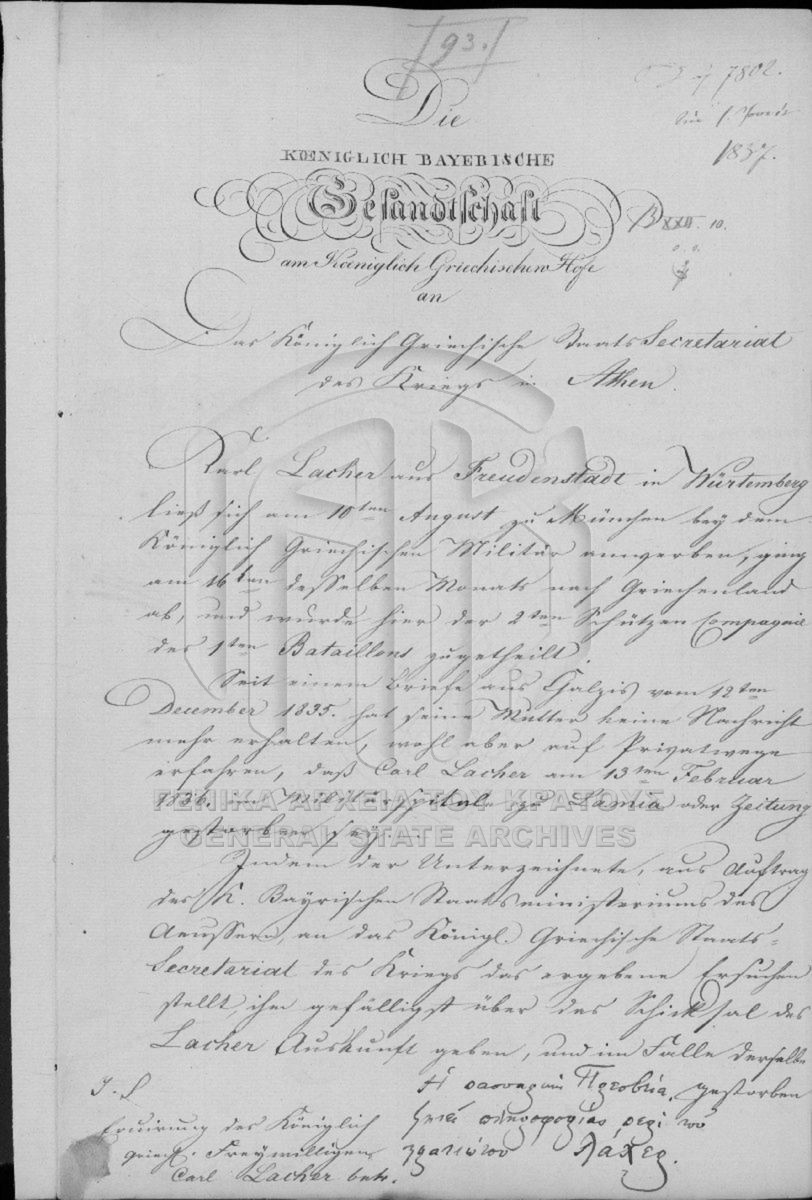 93.
7802.
1837.
Die
KŒNIGLICH BAYERISCHE
Gesandtschaft
XXII. 10.
am Kœniglich Griechischen Hofe
an
Das Königlich Griechische Staats Secretariat
des Kriegs in Athen.
Karl Lacher aus Freudenstadt in Würtemberg
ließ sich am 10ten August zu München bey dem
Königlich Griechischen Militär anwerben, ging
am 16ten desselben Monats nach Griechenland
ab, und wurde hier der 2ten Schützen Compagnie
des 1ten Bataillons zugetheilt.
Seit einem Briefe aus vom 12ten
December 1835. hat seine Mutter keine Nachricht
mehr erhalten, wohl aber auf Privatwege
erfahren, daß Carl Lacher am 13ten Februar
1836. im Militärspitale zu Lamia oder Zeitung
gestorben sey.
ΓΕΝΙΚΑ ΑΡΧΕΙΑ ΤΟΥ ΚΡΑΤΟΥΣ
GENERAL STATE ARCHIVES
Indem der Unterzeichnete, aus Auftrag
des K. Bayrischen Staatsministeriums des
Aeussern, an das Königl. Griechische Staats-
Secretariat des Kriegs das ergebene Ersuchen
stellt, ihm gefälligst über das Schicksal des
Lacher Auskunft geben, und im Falle derselbe
gestorben
Ἡ Πρεσβεία
πληροφορίας περὶ τοῦ
στρατιώτου Λάχερ.
Eruirung des Königlich
griech. Freywilligen
Carl Lacher betr.